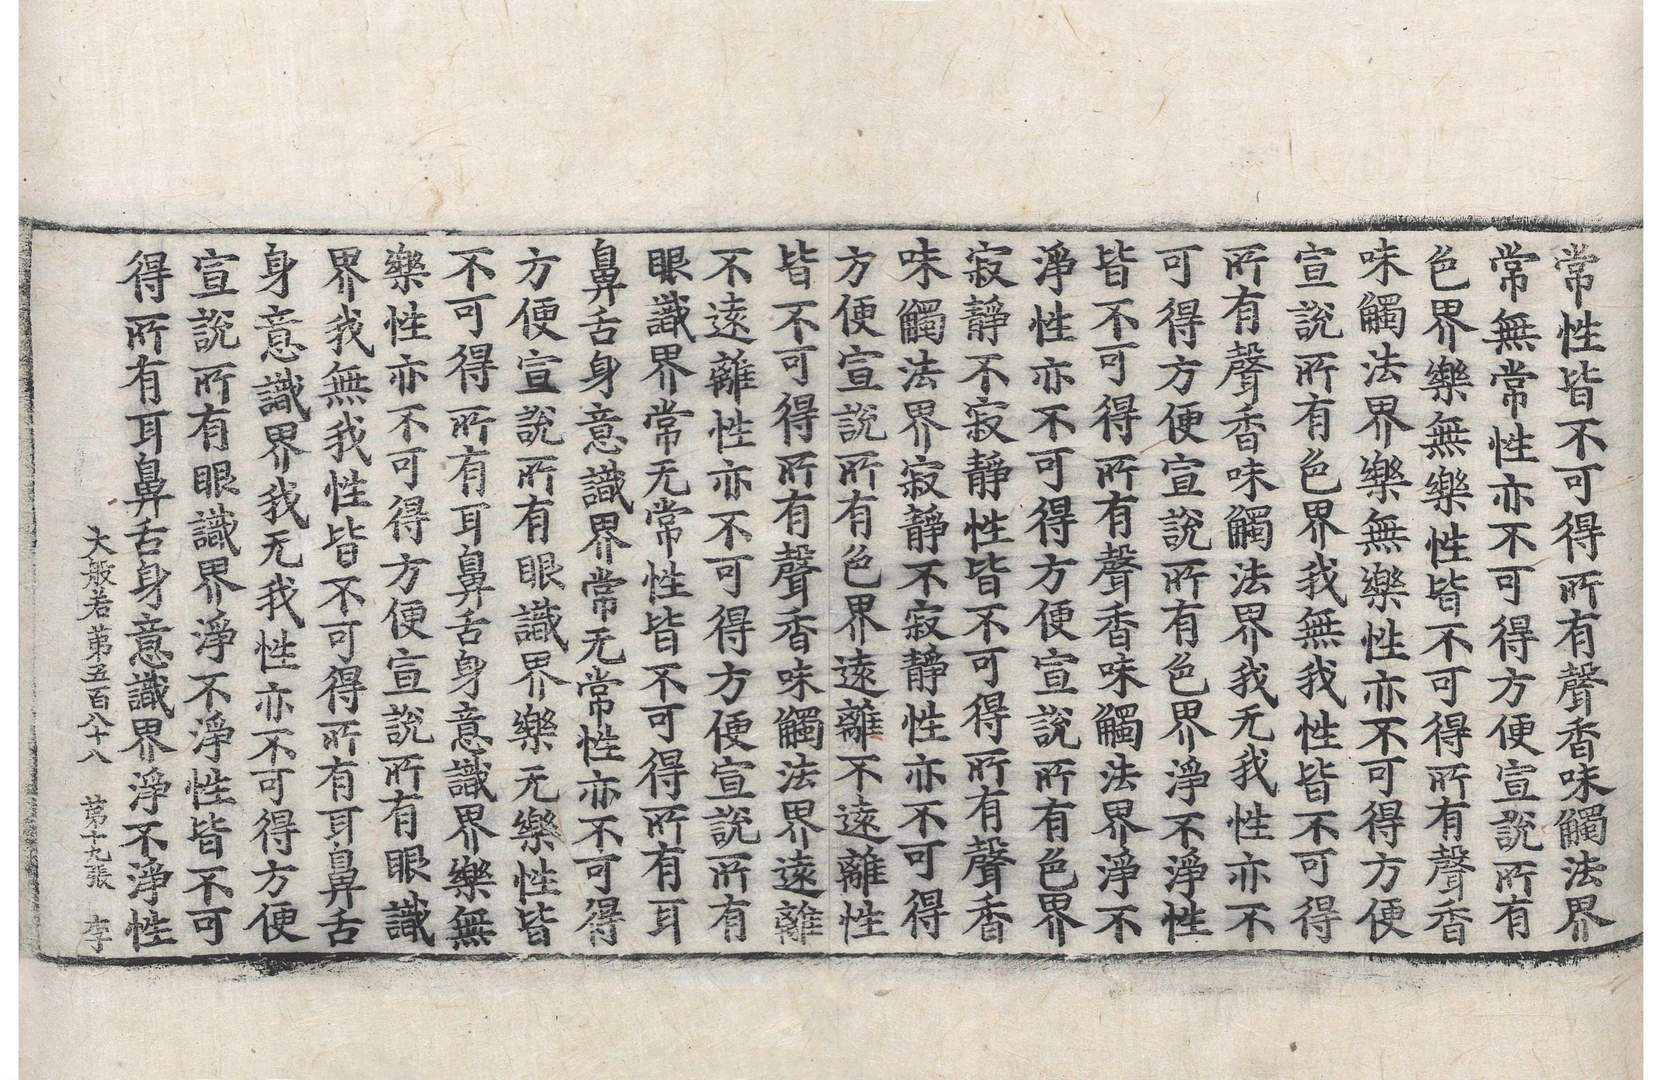 常性皆不可得所有聲香味觸法界
常無常性亦不可得方便宣說所有
色界樂無樂性皆不可得所有聲香
味觸法界樂無樂性亦不可得方便
宣說所有色界我無我性皆不可得
所有聲香味觸法界我无我性亦不
可得方便宣說所有色界淨不淨性
皆不可得所有聲香味觸法界淨不
淨性亦不可得方便宣說所有色界
寂靜不寂靜性皆不可得所有聲香
味觸法界寂靜不寂靜性亦不可得
方便宣說所有色界遠離不遠離性
皆不可得所有聲香味觸法界遠離
不遠離性亦不可得方便宣說所有
眼識界常无常性皆不可得所有耳
鼻舌身意識界常无常性亦不可得
方便宣說所有眼識界樂无樂性皆
不可得所有耳鼻舌身意識界樂無
樂性亦不可得方便宣說所有眼識
界我無我性皆不可得所有耳鼻舌
身意識界我无我性亦不可得方便
宣說所有眼識界淨不淨性皆不可
得所有耳鼻舌身意識界淨不淨性
大般若第五百八十八 第十九張 李